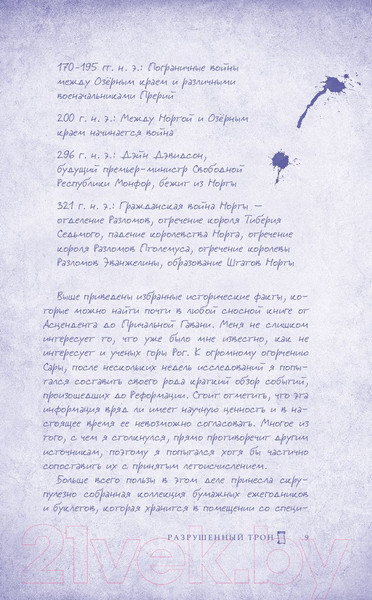 170-195 гг. н. э.: Пограничные войны
между Озёрным краем и различными
военачальниками Прерий
200 г. н. э.: Между Нортой и Озёрным
краем начинается война
296 г. н. э.: Дэйн Дэвидсон,
будущий премьер-министр Свободной
Республики Монфор, бежит из Норты
321 г. н. э.: Гражданская война Норты —
отделение Разломов, отречение короля Тиберия
Седьмого, падение королевства Норта, отречение
короля Разломов Птолемуса, отречение королевы
Разломов Эванжелины, образование Штатов Норты
Выше приведены избранные исторические факты, ко-
торые можно найти почти в любой сносной книге от
Асцендента до Причальной Гавани. Меня не слишком
интересует то, что уже было мне известно, как не
интересует и ученых горы Рог. К огромному огорчению
Сары, после нескольких недель исследований я попы-
тался составить своего рода краткий обзор событий,
произошедших до Реформации. Стоит отметить, что эта
информация вряд ли имеет научную ценность и в на-
стоящее время ее невозможно согласовать. Многое из
того, с чем я столкнулся, прямо противоречит другим
источникам, поэтому я попытался хотя бы частично
сопоставить их с принятым летоисчислением.
Больше всего пользы в этом деле принесла скру-
пулезно собранная коллекция бумажных ежегодников
и буклетов, которая хранится в помещении со специ-
РАЗРУШЕННЫЙ ТРОН 9
21vek.by